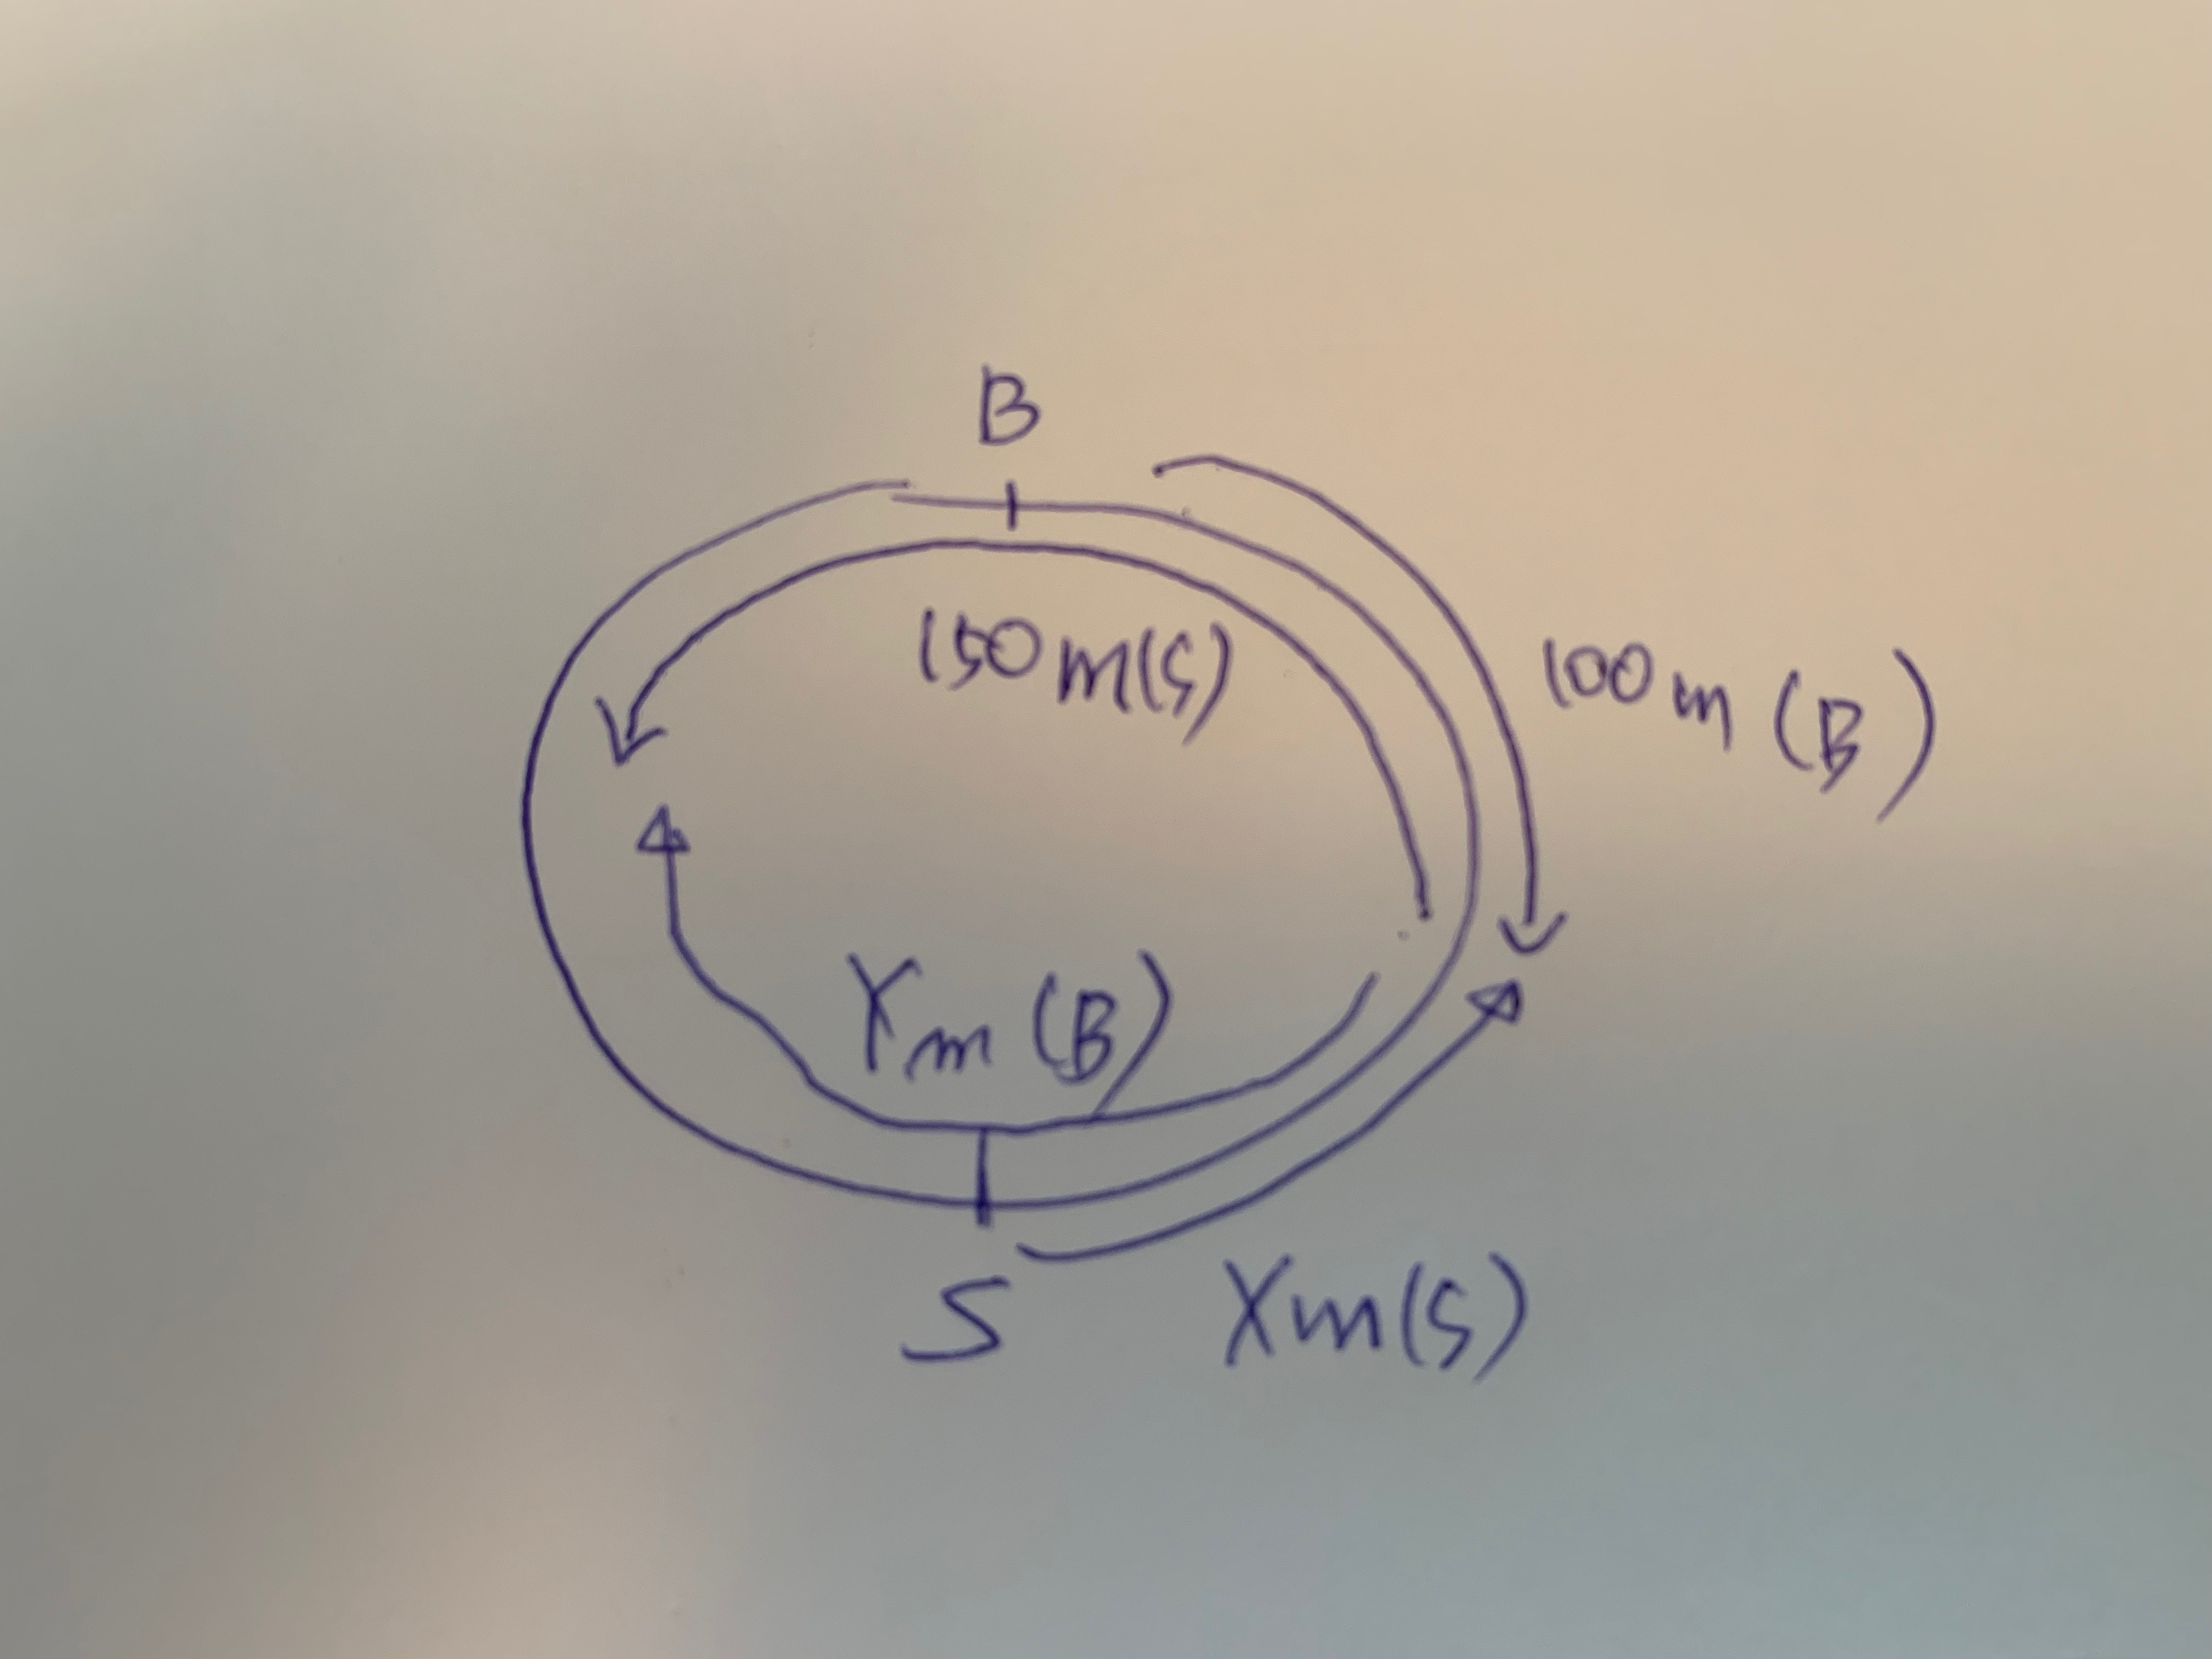 B
150m(S)
100m (B)
Ym (B)
S
Xm(S)